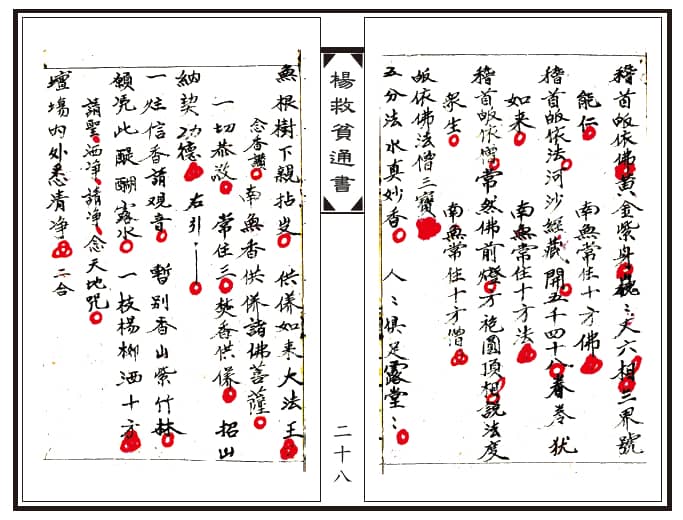 稽首皈依佛黄金紫身巍〻丈六相三界號
能仁 南無常住十方佛
稽首皈依法河沙經藏開五千四十八
如来 南無常住十方法
稽首皈依僧常然佛前燈方袍圓頂相説法度
衆生 南無常住十方僧
皈依佛法僧三寶
五分法水真妙香 人〻俱足露堂〻
楊救貧通書
二十八
無根樹下親拈出 供俻如来大法王
念香讚 南無香供俻諸佛菩薩
一切恭敬 常住三 焚香供俻 招山
納契功德 右引
一炷信香請觀音 暫别香山紫竹林
願凭此醍醐露水 一枝楊柳洒十方
請聖洒净請净念天地咒
壇塲内外悉清净 二合